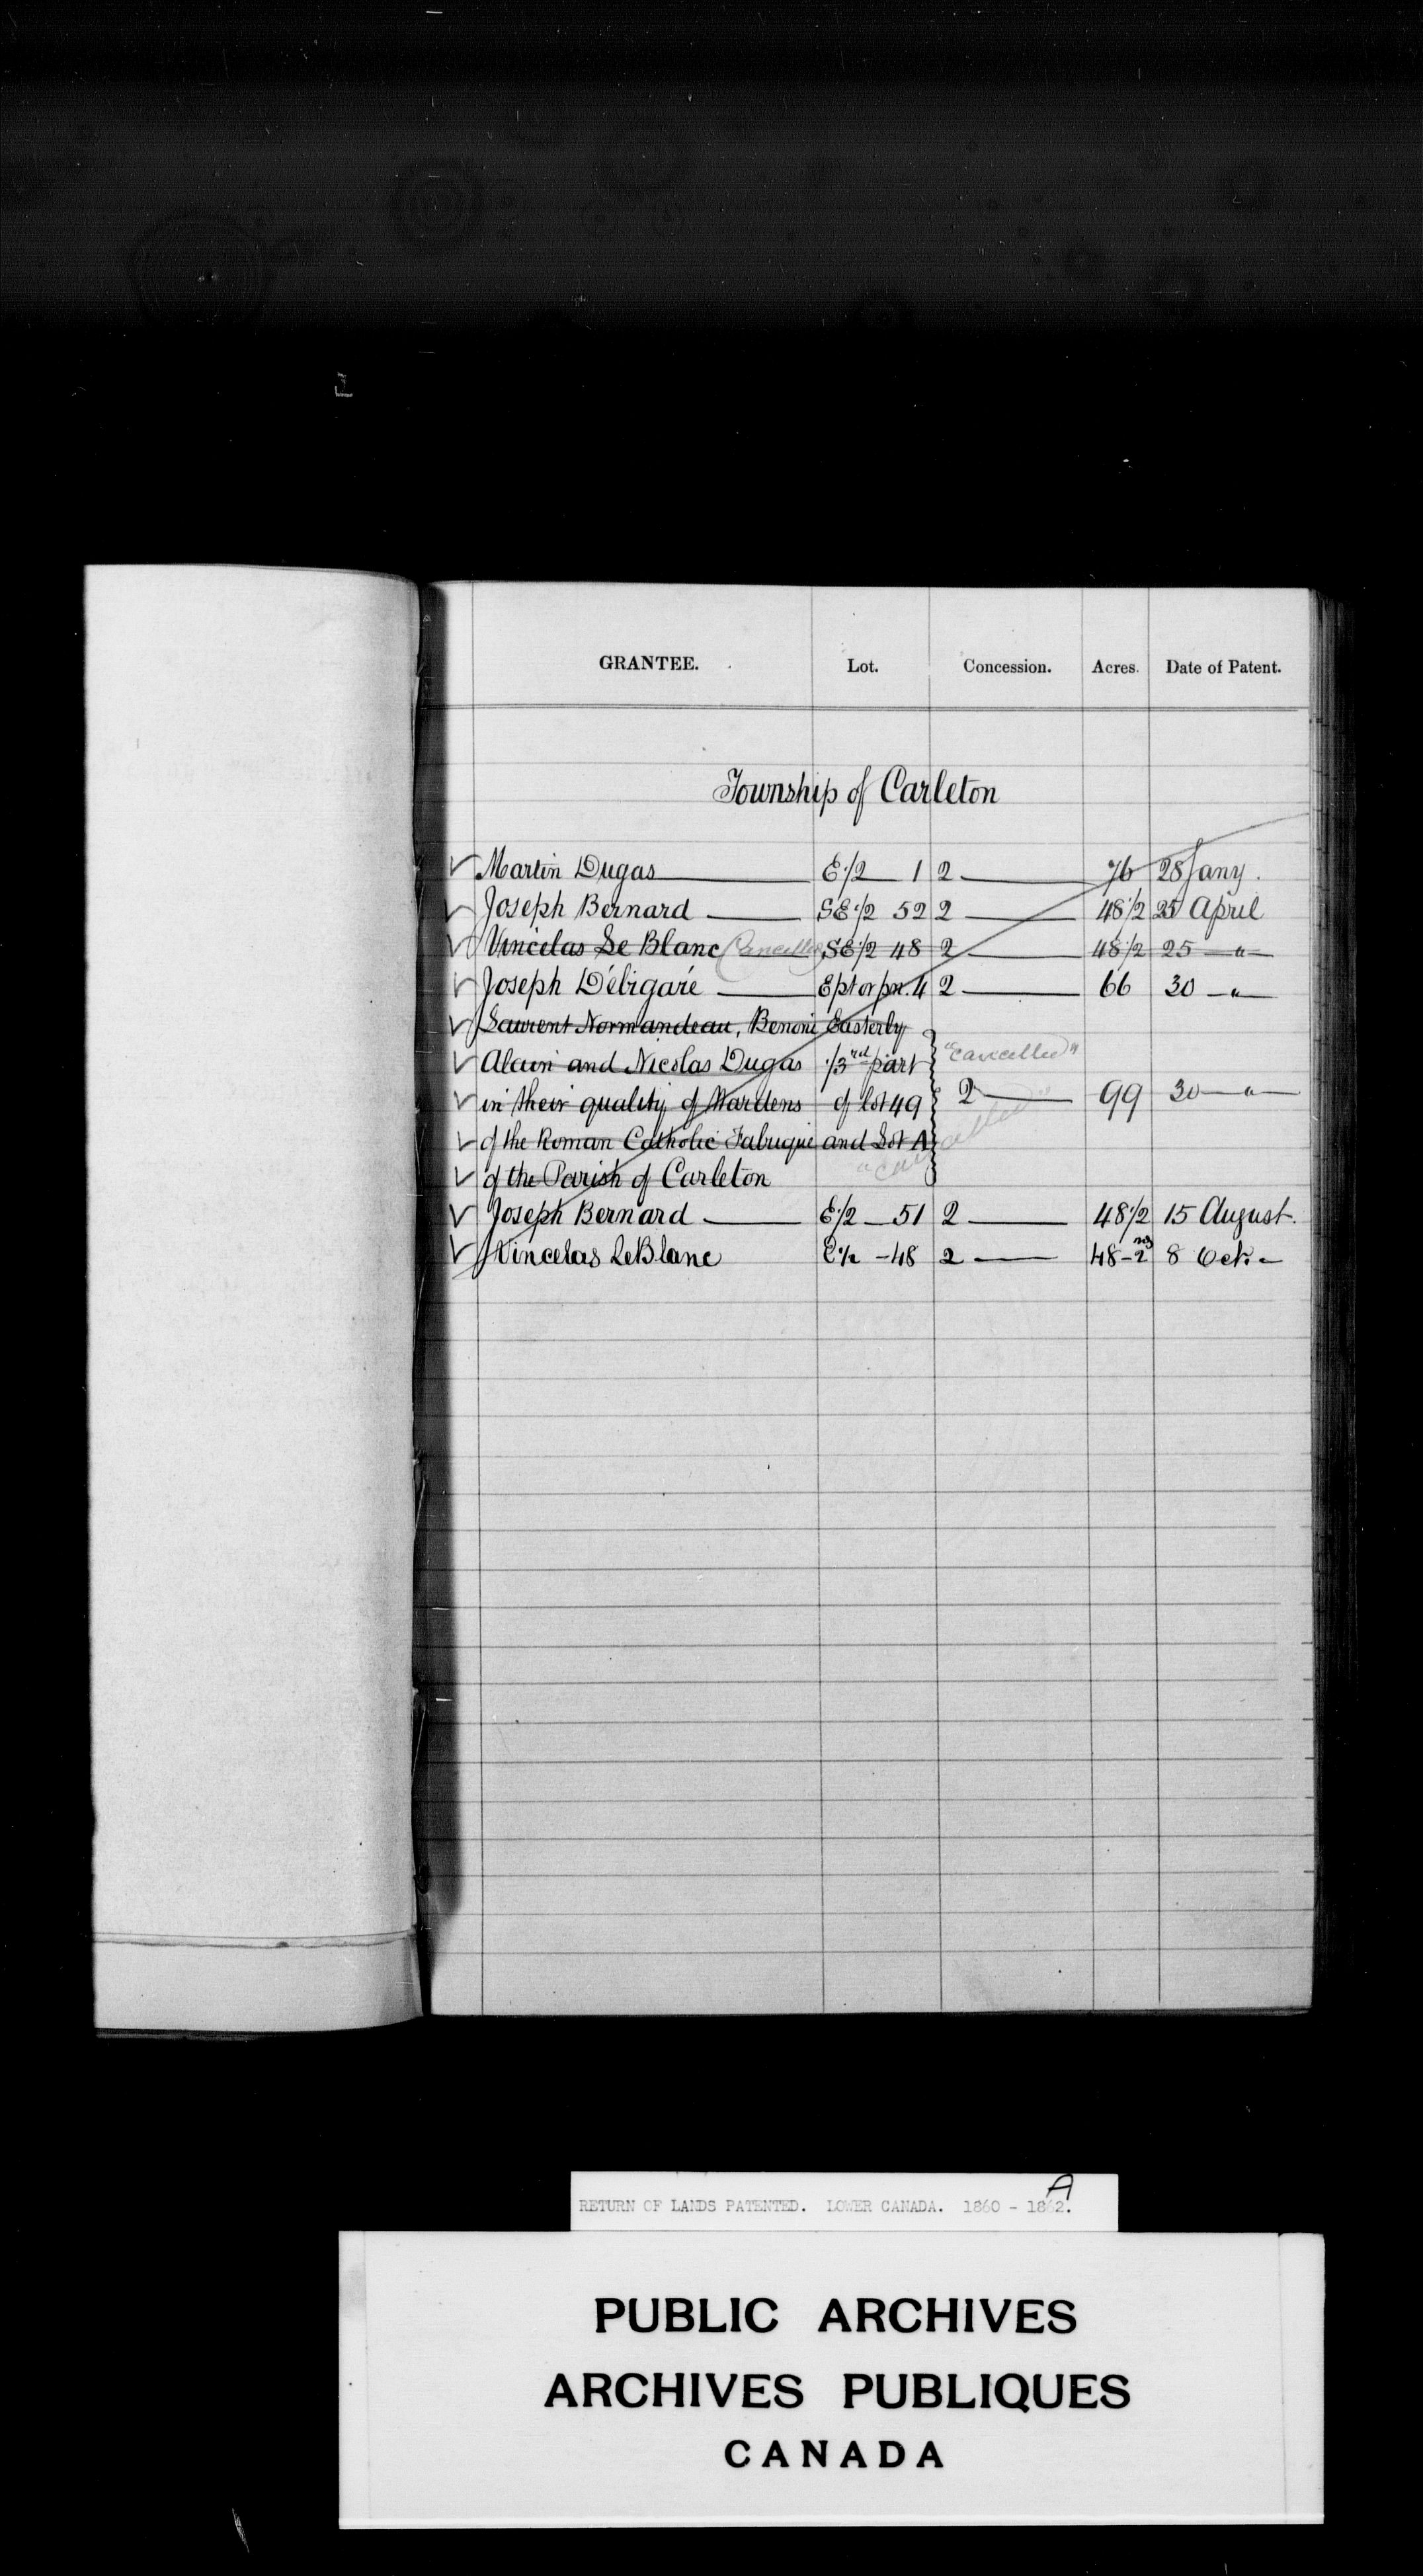 GRANTEE. Lot. Concession. Acres. Date of Patent.
Township of Carleton
Martin Dugas E 1/2 1 2 76 28 Jany.
Joseph Bernard SE 1/2 52 2 48 1/2 25 April
Vincelas Le Blanc (Cancelled) SE 1/2 48 2 48 1/2 25 "
Joseph Débigaré E pt or pn. 4 2 66 30 "
Laurent Normandeau, Benoni Easterly
Alain and Nicolas Dugas 1/3rd part "cancelled"
in their quality of Wardens of lot 49 2 99 30 "
of the Roman Catholic Fabrique and Lot A
of the Parish of Carleton "cancelled"
Joseph Bernard E 1/2 51 2 48 1/2 15 August.
Vincelas LeBlanc E 1/2 - 48 2 8 Oct.
A
RETURN OF LANDS PATENTED. LOWER CANADA. 1860 - 1862.
PUBLIC ARCHIVES
ARCHIVES PUBLIQUES
CANADA